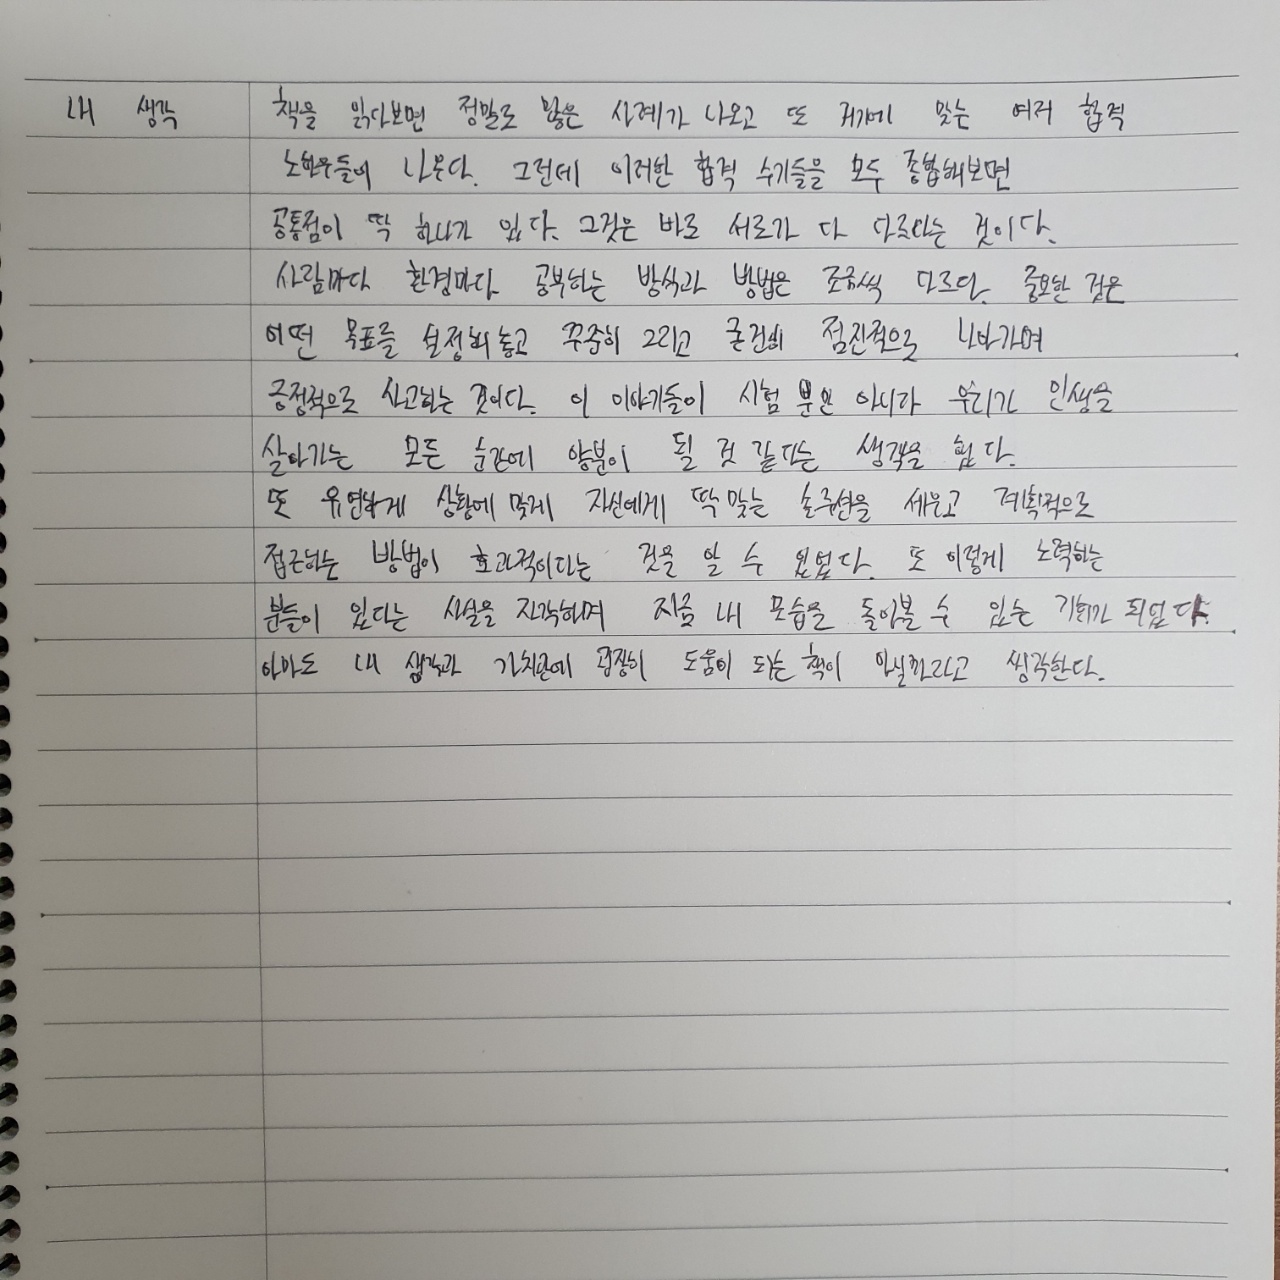 내 생각 책을 읽다보면 정말로 많은 사례가 나오고 또 거기에 맞는 여러 합격
노하우들이 나온다. 그런데 이러한 합격 수기들을 모두 종합해보면
공통점이 딱 하나가 있다. 그것은 바로 서로가 다 다르다는 것이다.
사람마다 환경마다 공부하는 방식과 방법은 조금씩 다르다. 중요한 것은
어떤 목표를 설정해놓고 꾸준히 그리고 굳건히 점진적으로 나아가며
긍정적으로 사고하는 것이다. 이 이야기들이 시험 뿐만 아니라 우리가 인생을
살아가는 모든 순간에 양분이 될 것 같다는 생각을 했다.
또 유연하게 상황에 맞게 자신에게 딱 맞는 솔루션을 세우고 계획적으로
접근하는 방법이 효과적이다는 것을 알 수 있었다. 또 이렇게 노력하는
분들이 있다는 사실을 자각하며 지금 내 모습을 돌아볼 수 있는 기회가 되었다.
아마도 내 생각과 가치관에 굉장히 도움이 되는 책이 아닐까라고 생각한다.